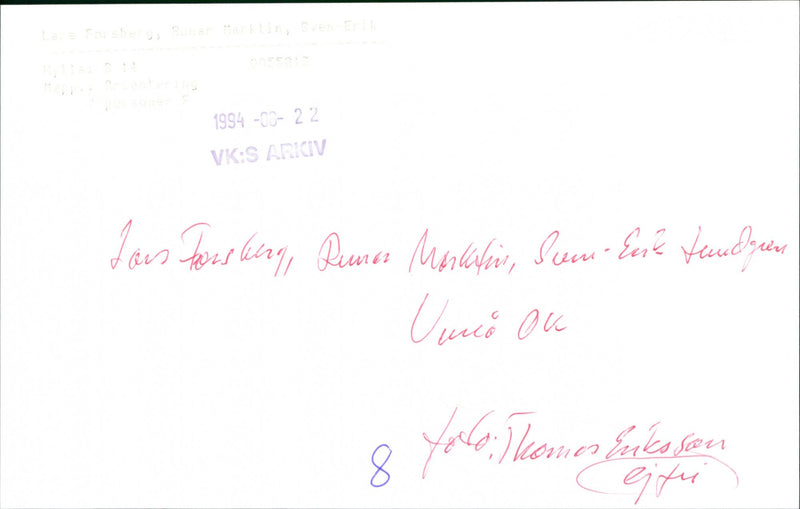 Lars Forsberg, Runar Marktin, Sven-Erik
Hylla: B 14 9055813
Mapp: Orientering
personer F
1994 -08- 22
VK:S ARKIV
Lars Forsberg, Runar Marktin, Sven-Erik Lundgren
Umeå OK
foto: Thomas Eriksson
ej fri
8